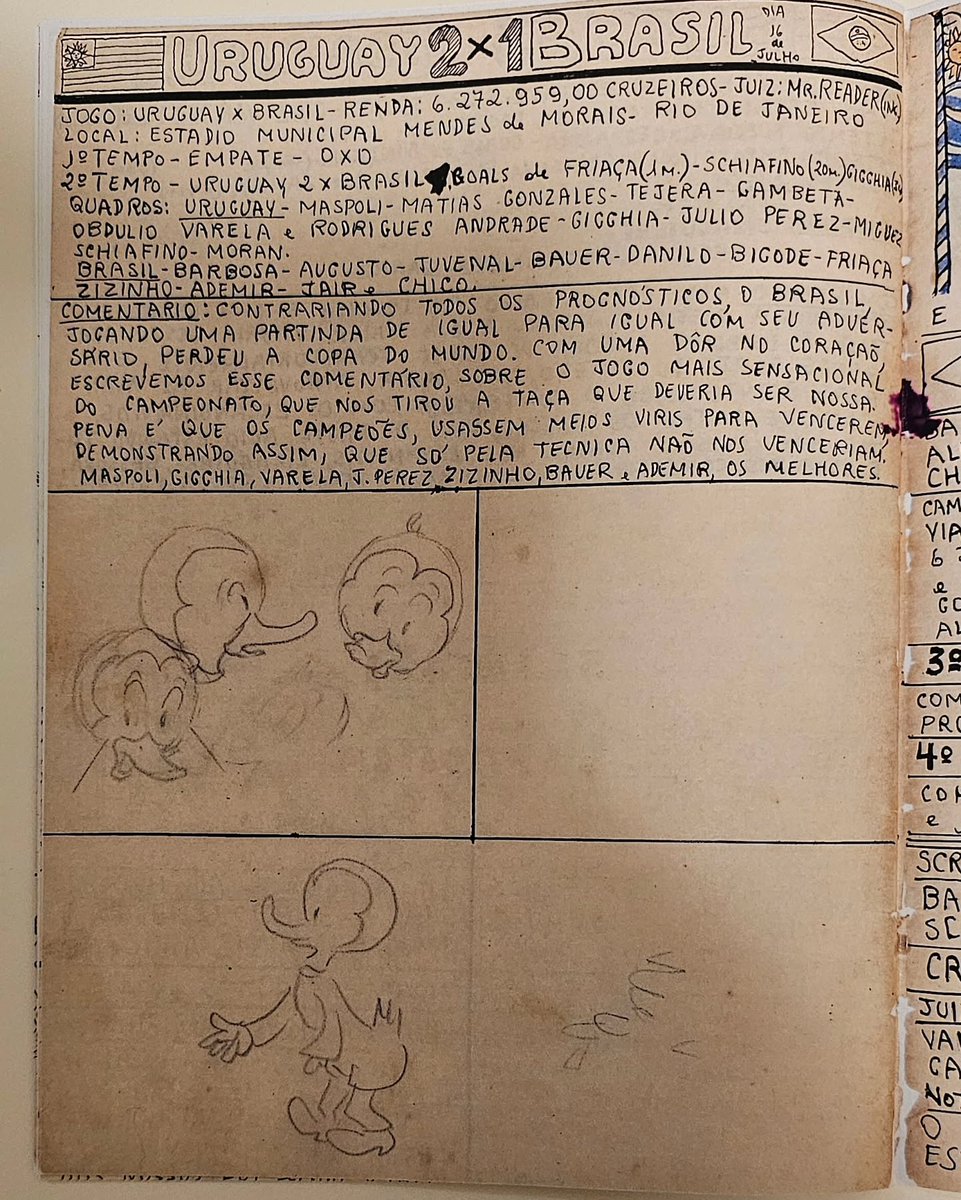 URUGUAY 2x1 BRASIL
DIA
16
de
JULHO
JOGO: URUGUAY x BRASIL - RENDA: 6.272.959,00 CRUZEIROS - JUIZ: MR. READER
LOCAL: ESTADIO MUNICIPAL MENDES de MORAIS - RIO DE JANEIRO
1º TEMPO - EMPATE - 0X0
2º TEMPO - URUGUAY 2 x BRASIL GOALS de FRIAÇA (1 M.) - SCHIAFINO (20m.) GIGGHIA
QUADROS: URUGUAY - MASPOLI - MATIAS GONZALES - TEJERA - GAMBETA -
OBDULIO VARELA e RODRIGUES ANDRADE - GIGGHIA - JULIO PEREZ - MIGUEZ
SCHIAFINO - MORAN.
BRASIL - BARBOSA - AUGUSTO - JUVENAL - BAUER - DANILO - BIGODE - FRIAÇA
ZIZINHO - ADEMIR - JAIR e CHICO.
COMENTARIO: CONTRARIANDO TODOS OS PROGNÓSTICOS, O BRASIL,
JOGANDO UMA PARTINDA DE IGUAL PARA IGUAL COM SEU ADVER-
SÁRIO, PERDEU A COPA DO MUNDO. COM UMA DÔR NO CORAÇÃO,
ESCREVEMOS ESSE COMENTÁRIO, SOBRE O JOGO MAIS SENSACIONAL
DO CAMPEONATO, QUE NOS TIROU A TAÇA QUE DEVERIA SER NOSSA.
PENA E' QUE OS CAMPEÕES, USASSEM MEIOS VIRIS PARA VENCEREM
DEMONSTRANDO ASSIM, QUE SO' PELA TECNICA NAÕ NOS VENCERIAM.
MASPOLI, GIGGHIA, VARELA, J. PEREZ, ZIZINHO, BAUER e ADEMIR, OS MELHORES.
E
BA
AL
CH
CAM
VIA
6
e
GO
AL
3º
COM
PRO
4º
CO
e
SCR
BA
SC
CR
JUI
VA
GA
NOT
O
ES